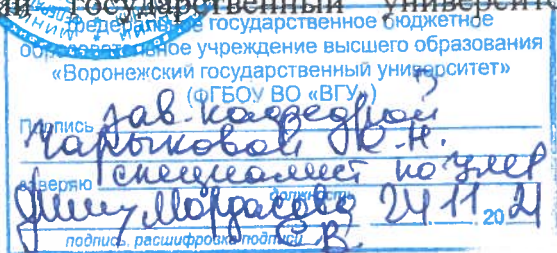 государственный университет
Федеральное государственное бюджетное
образовательное учреждение высшего образования
«Воронежский государственный университет»
(ФГБОУ ВО «ВГУ»)
Подпись зав. кафедрой
Чарыковой О.Н.
заверяю специалист
должность
Мордасова 24.11.2021
подпись, расшифровка подписи